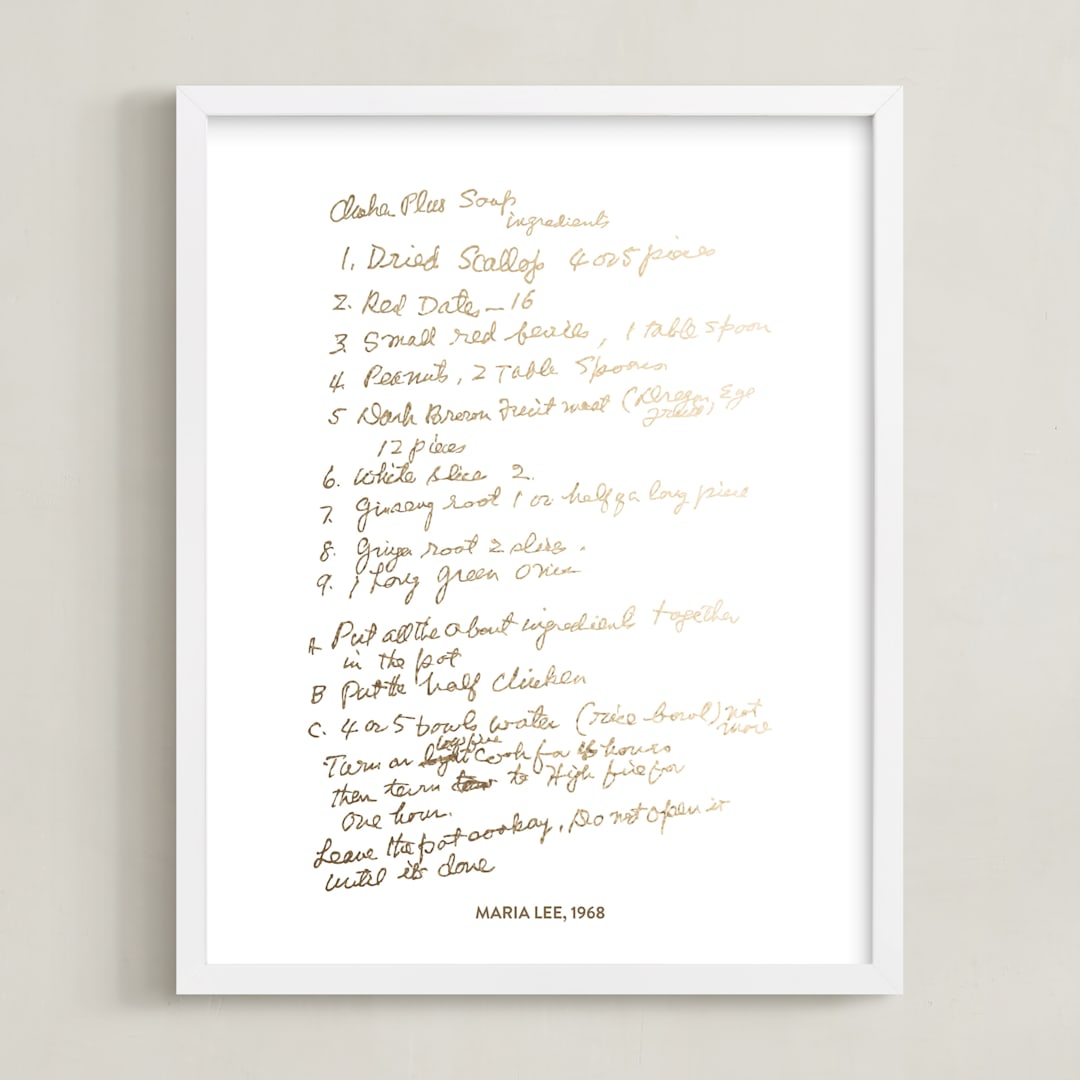 Plus Soup
ingredients
1. Dried Scallop 4 or 5 pieces
2. Red Dates – 16
3. Small red berries, 1 table spoon
4. Peanuts, 2 Table Spoons.
5 Dark Brown Fruit meat (Dragon Eye
fruit)
12 pieces
6. White slice 2.
7. Ginseng root 1 or half of a long piece
8. Ginger root 2 slices.
9. 1 Long green Onion
A Put all the about ingredients together
in the pot
B Put the half Chicken
C. 4 or 5 bowls water (rice bowl) not
more
Turn on low fire Cook for hours
then turn to High fire for
one hour.
Leave the pot . Do not open it
until it's done
MARIA LEE, 1968